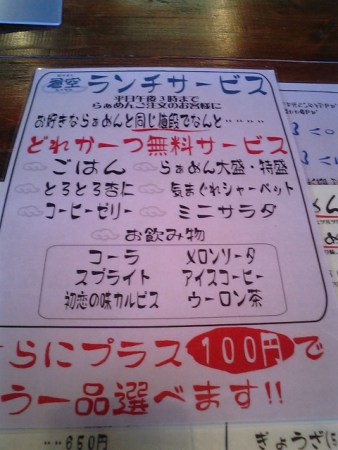 ランチサービス
平日午後3時まで
らぁめんご注文のお客様に
お好きならぁめんと同じ値段でなんと
どれか一つ無料サービス
ごはん らぁめん大盛・特盛
とろとろ杏仁 気まぐれシャーベット
コーヒーゼリー ミニサラダ
お飲み物
コーラ メロンソーダ
スプライト アイスコーヒー
初恋の味カルピス ウーロン茶
らにプラス100円で
う一品選べます!!
650円
ぎょうざ(5